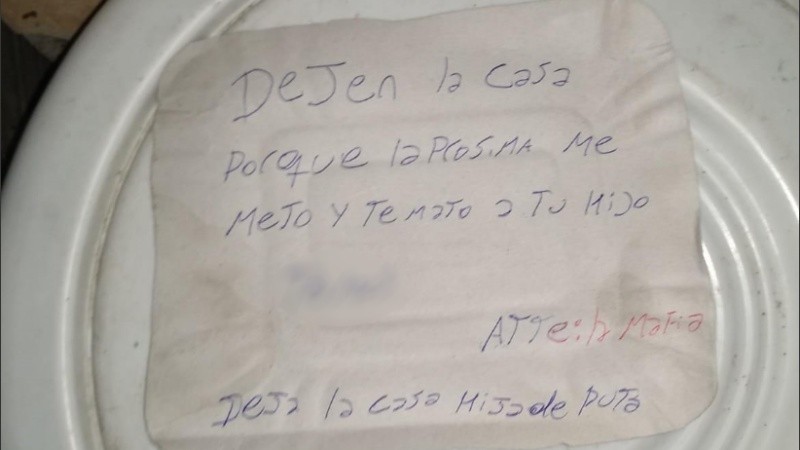 DeJen la casa
Porque la Procsima Me
Meto y Te Mato a Tu Hijo
ATTe: la Mafia
Deja la casa Hija de PUTa